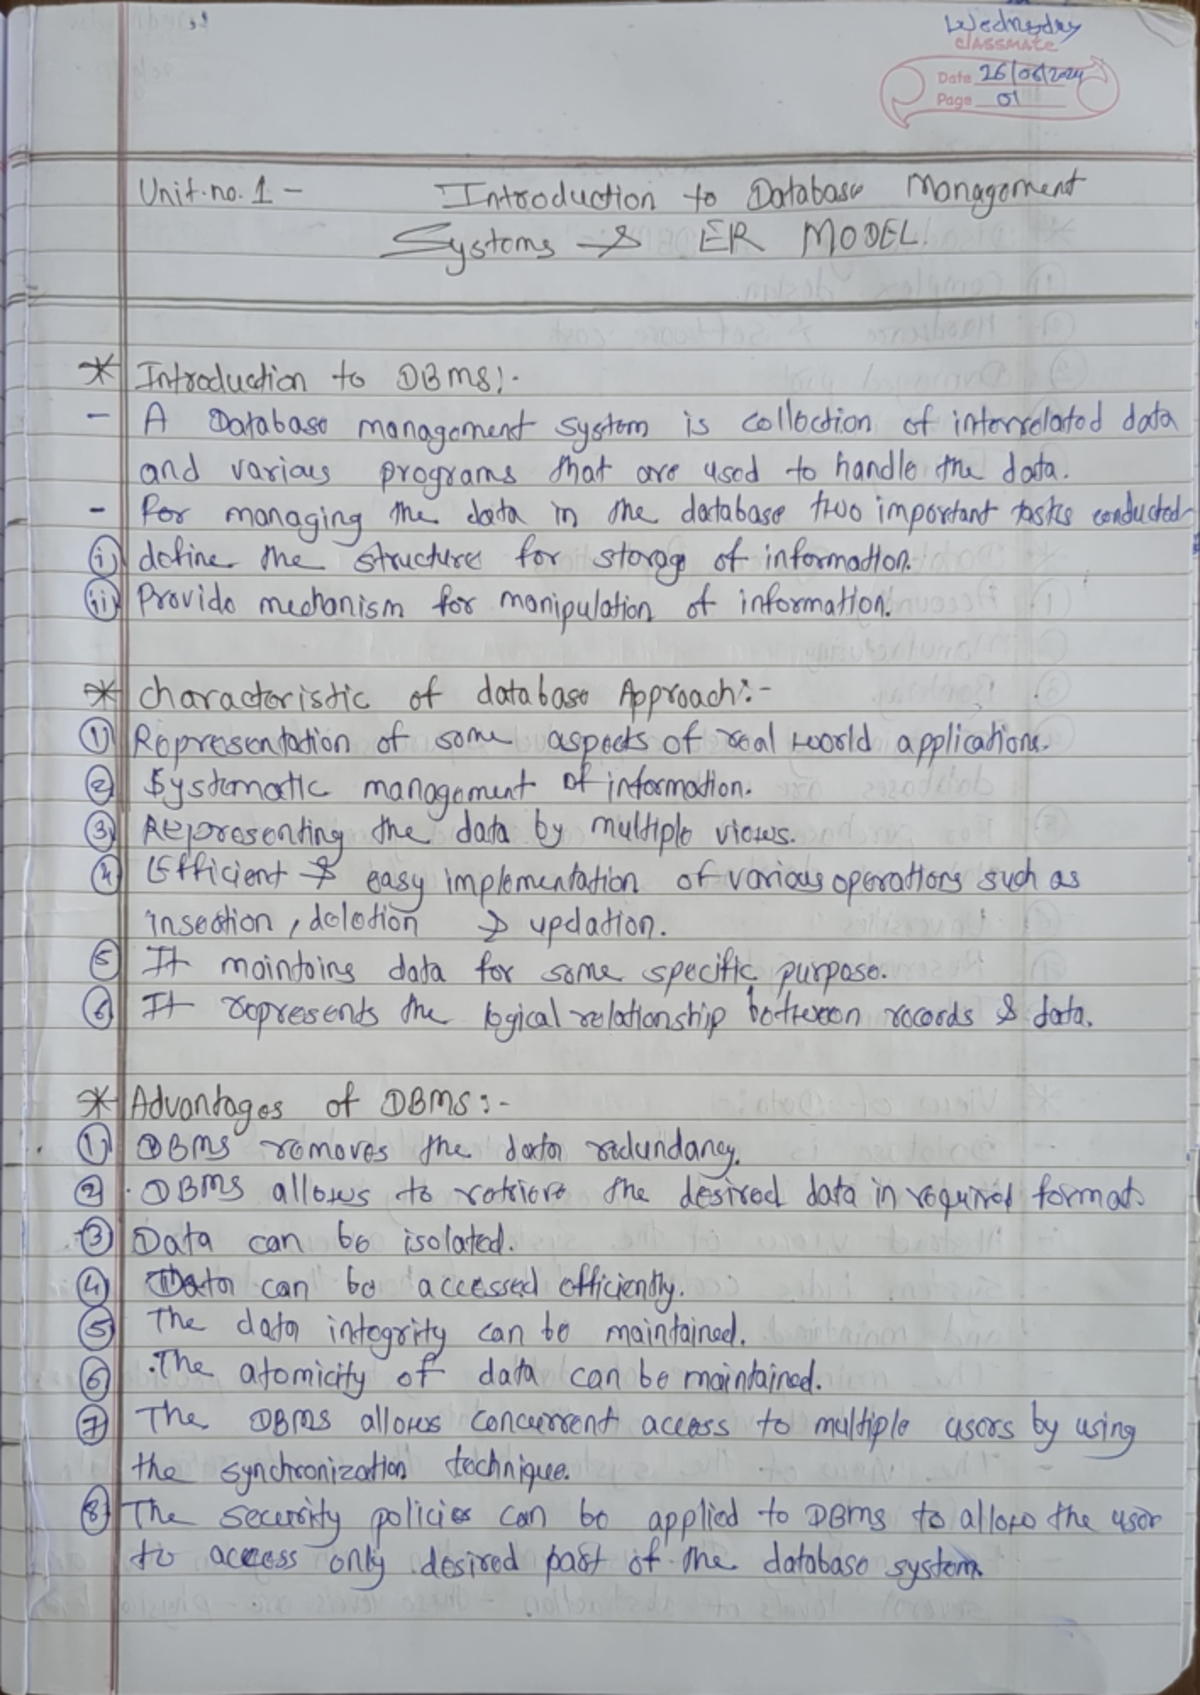 Wednesday
classmate
Date 26/06/2024
Page 01
Unit.no.1 - Introduction to Database Management
Systems & ER MODEL.
* Introduction to DBMS:-
- A Database management system is collection of interrelated data
and various programs that are used to handle the data.
- For managing the data in the database two important tasks conducted-
(i) define the structure for storage of information.
(ii) Provide mechanism for manipulation of information.
* Characteristic of database Approach:-
(1) Representation of some aspects of real world applications.
(2) Systematic management of information.
(3) Representing the data by multiple views.
(4) Efficient & easy implementation of various operations such as
insertion, deletion & updation.
(5) It maintains data for some specific purpose.
(6) It represents the logical relationship between records & data.
* Advantages of DBMS:-
(1) DBMS removes the data redundancy.
(2) DBMS allows to retrieve the desired data in required format.
(3) Data can be isolated.
(4) Data can be accessed efficiently.
(5) The data integrity can be maintained.
(6) The atomicity of data can be maintained.
(7) The DBMS allows concurrent access to multiple users by using
the synchronization technique.
(8) The security policies can be applied to DBMS to allow the user
to access only desired part of the database system.